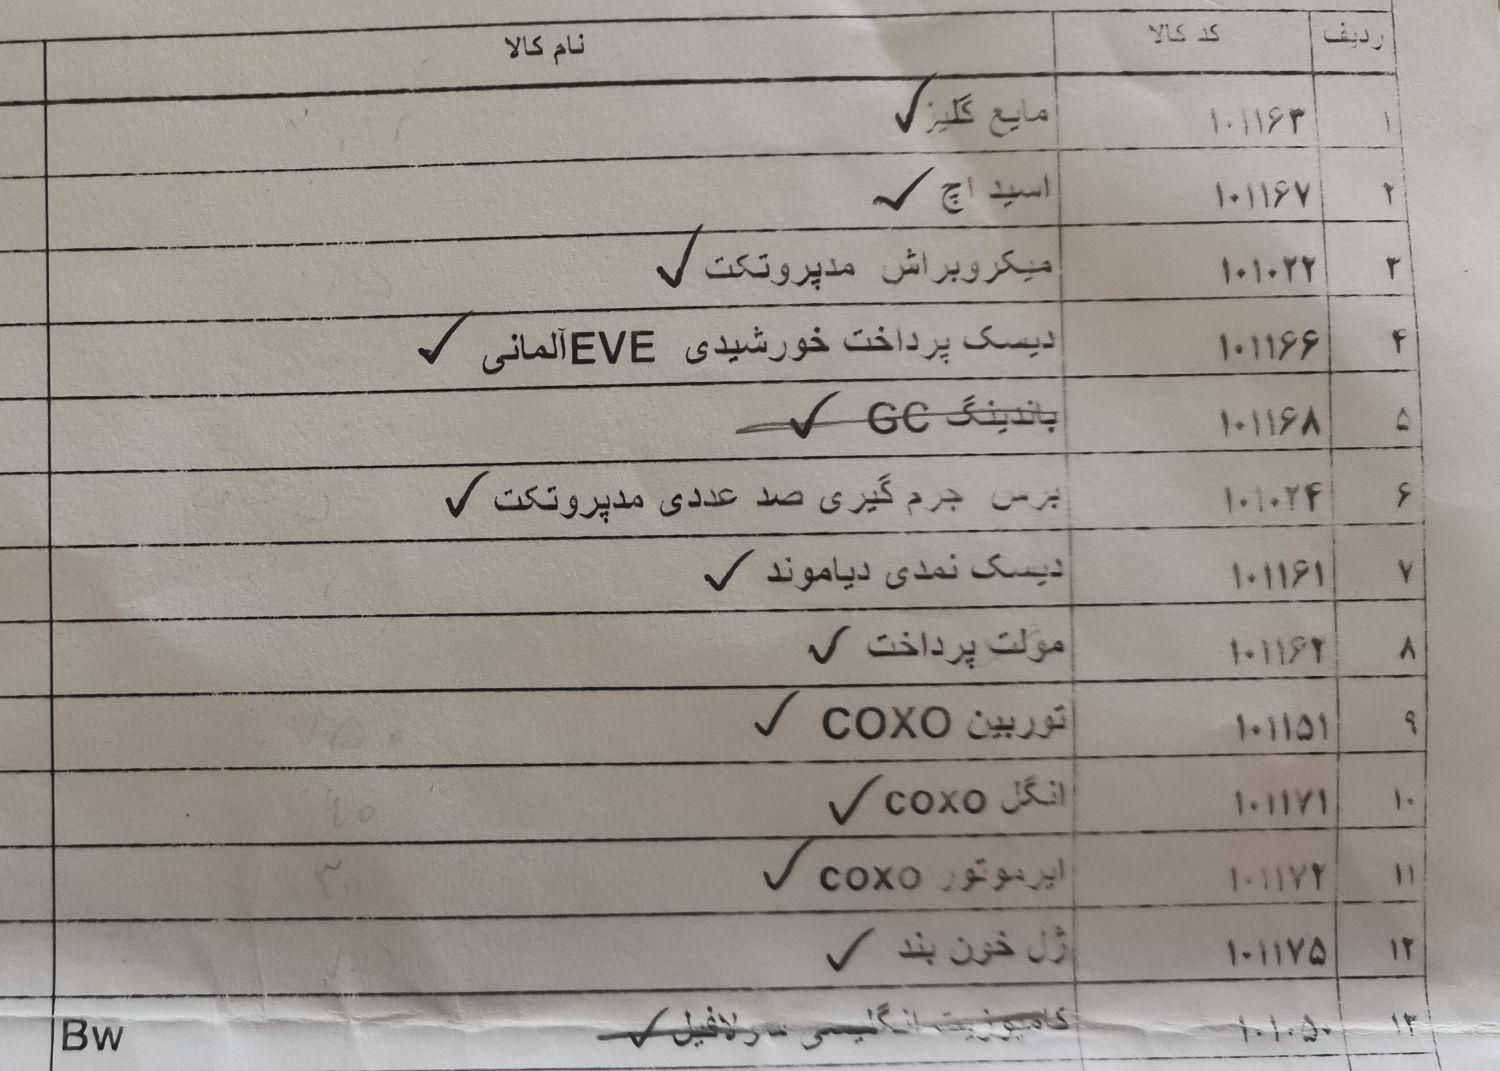 ردیف کد کالا نام کالا
۱ ۱۰۱۱۶۳ مایع گلیز
۲ ۱۰۱۱۶۷ اسید اچ
۳ ۱۰۱۰۲۲ میکروبراش مدپروتکت
۴ ۱۰۱۱۶۶ دیسک پرداخت خورشیدی EVE آلمانی
۵ ۱۰۱۱۶۸ باندینگ GC
۶ ۱۰۱۰۲۴ برس جرم گیری صد عددی مدپروتکت
۷ ۱۰۱۱۶۱ دیسک نمدی دیاموند
۸ ۱۰۱۱۶۲ مولت پرداخت
۹ ۱۰۱۱۵۱ توربین COXO
۱۰ ۱۰۱۱۷۱ انگل coxo
۱۱ ۱۰۱۱۷۲ ایرموتور coxo
۱۲ ۱۰۱۱۷۵ ژل خون بند
۱۳ ۱۰۱۰۵۰ کامپوزیت انگلیسی Bw